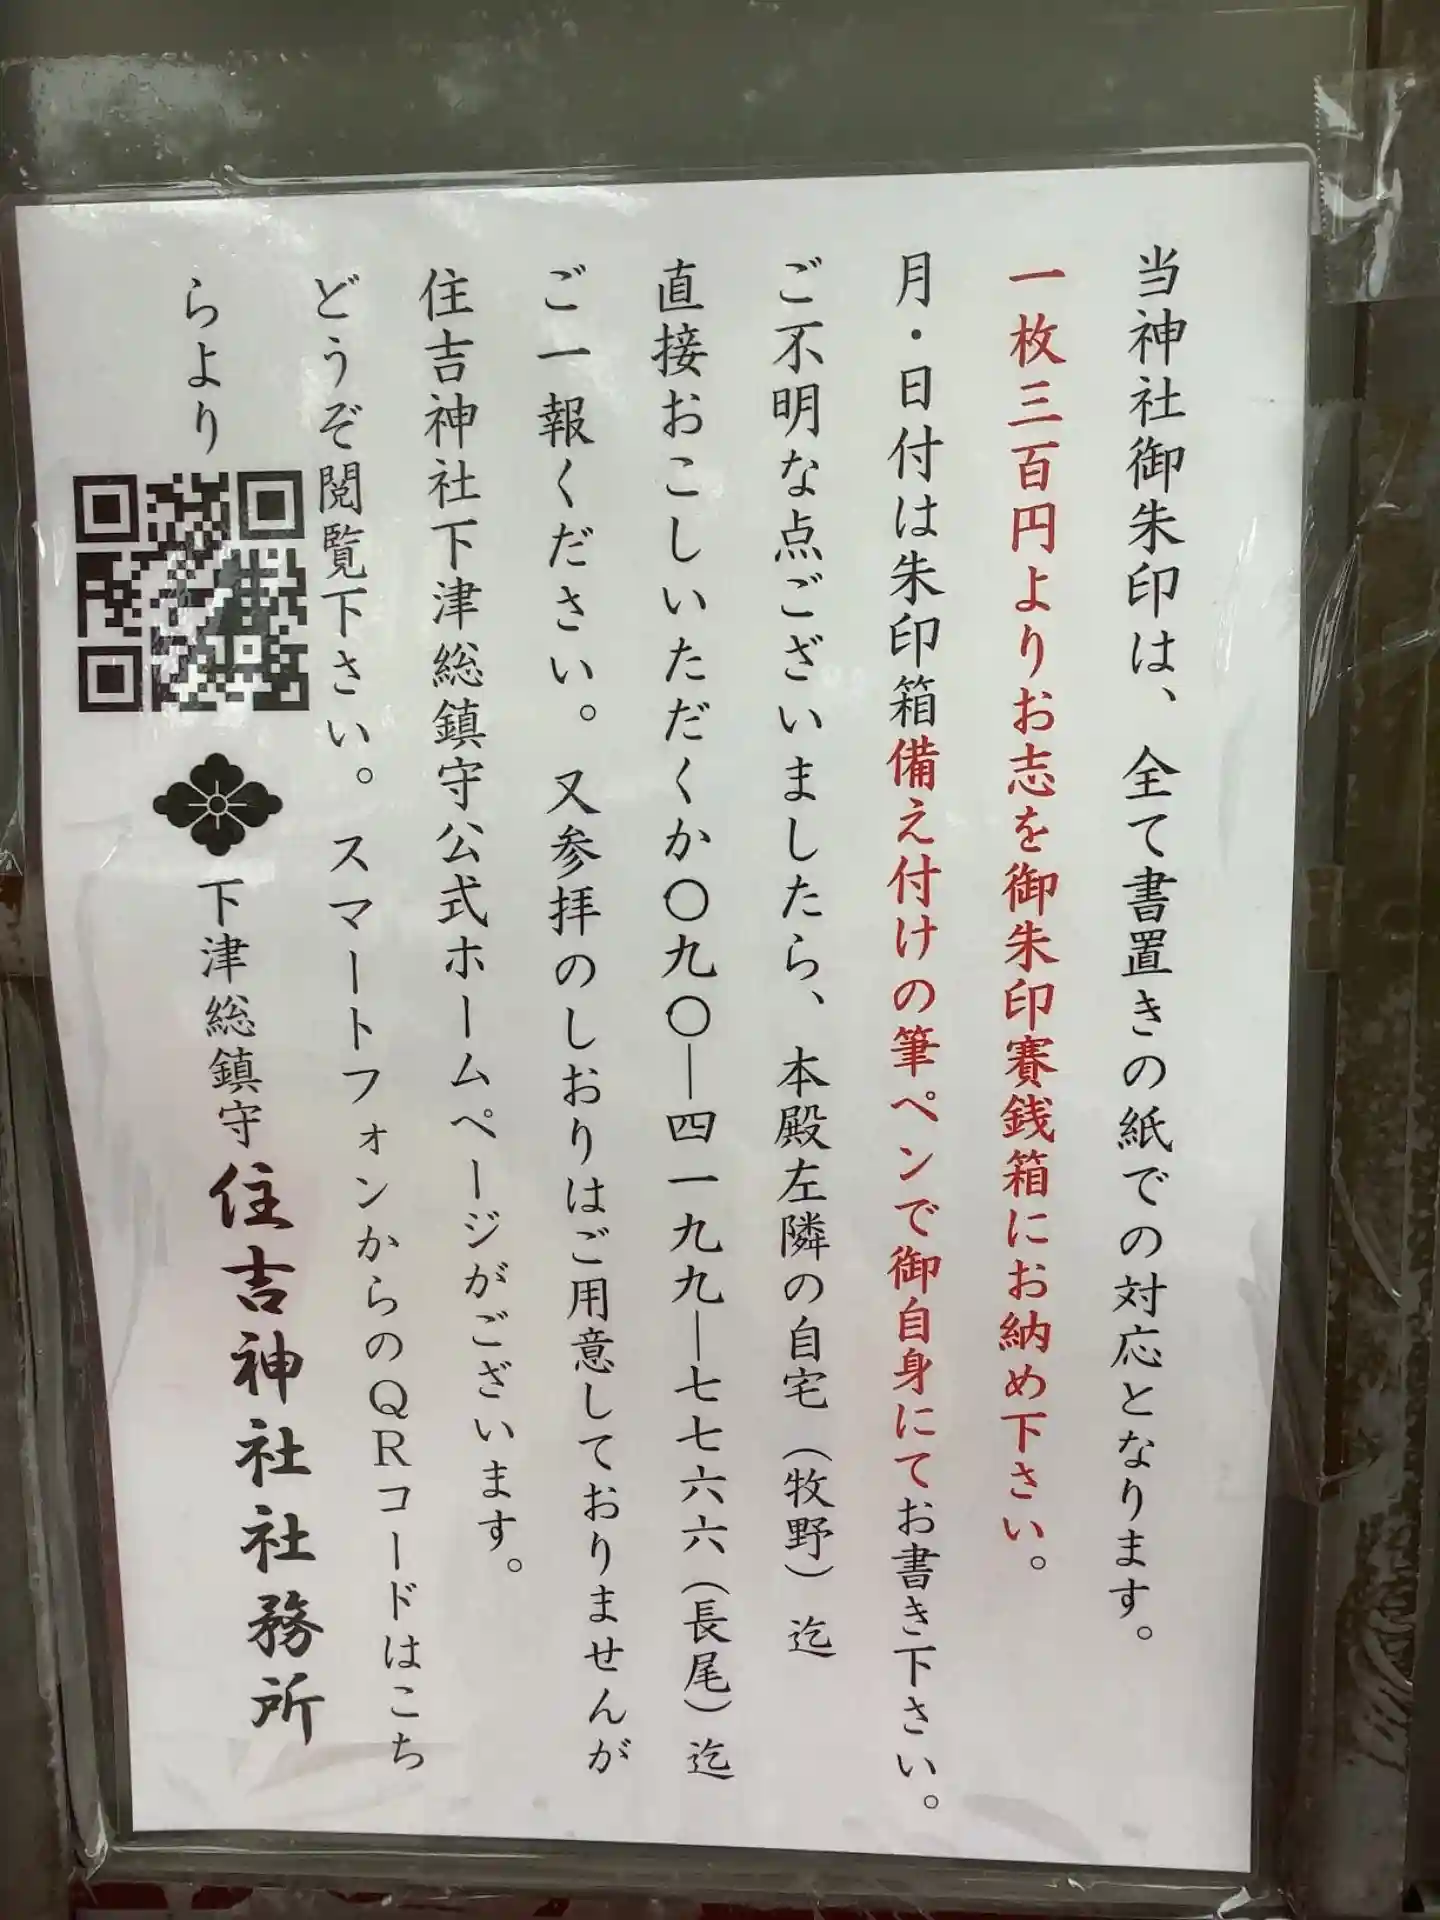 当神社御朱印は、全て書置きの紙での対応となります。
一枚三百円よりお志を御朱印賽銭箱にお納め下さい。
月・日付は朱印箱備え付けの筆ペンで御自身にてお書き下さい。
ご不明な点ございましたら、本殿左隣の自宅（牧野）迄
直接おこしいただくか〇九〇―四一九九―七七六六（長尾）迄
ご一報ください。又参拝のしおりはご用意しておりませんが
住吉神社下津総鎮守公式ホームページがございます。
どうぞ閲覧下さい。スマートフォンからのＱＲコードはこち
らより
下津総鎮守住吉神社社務所